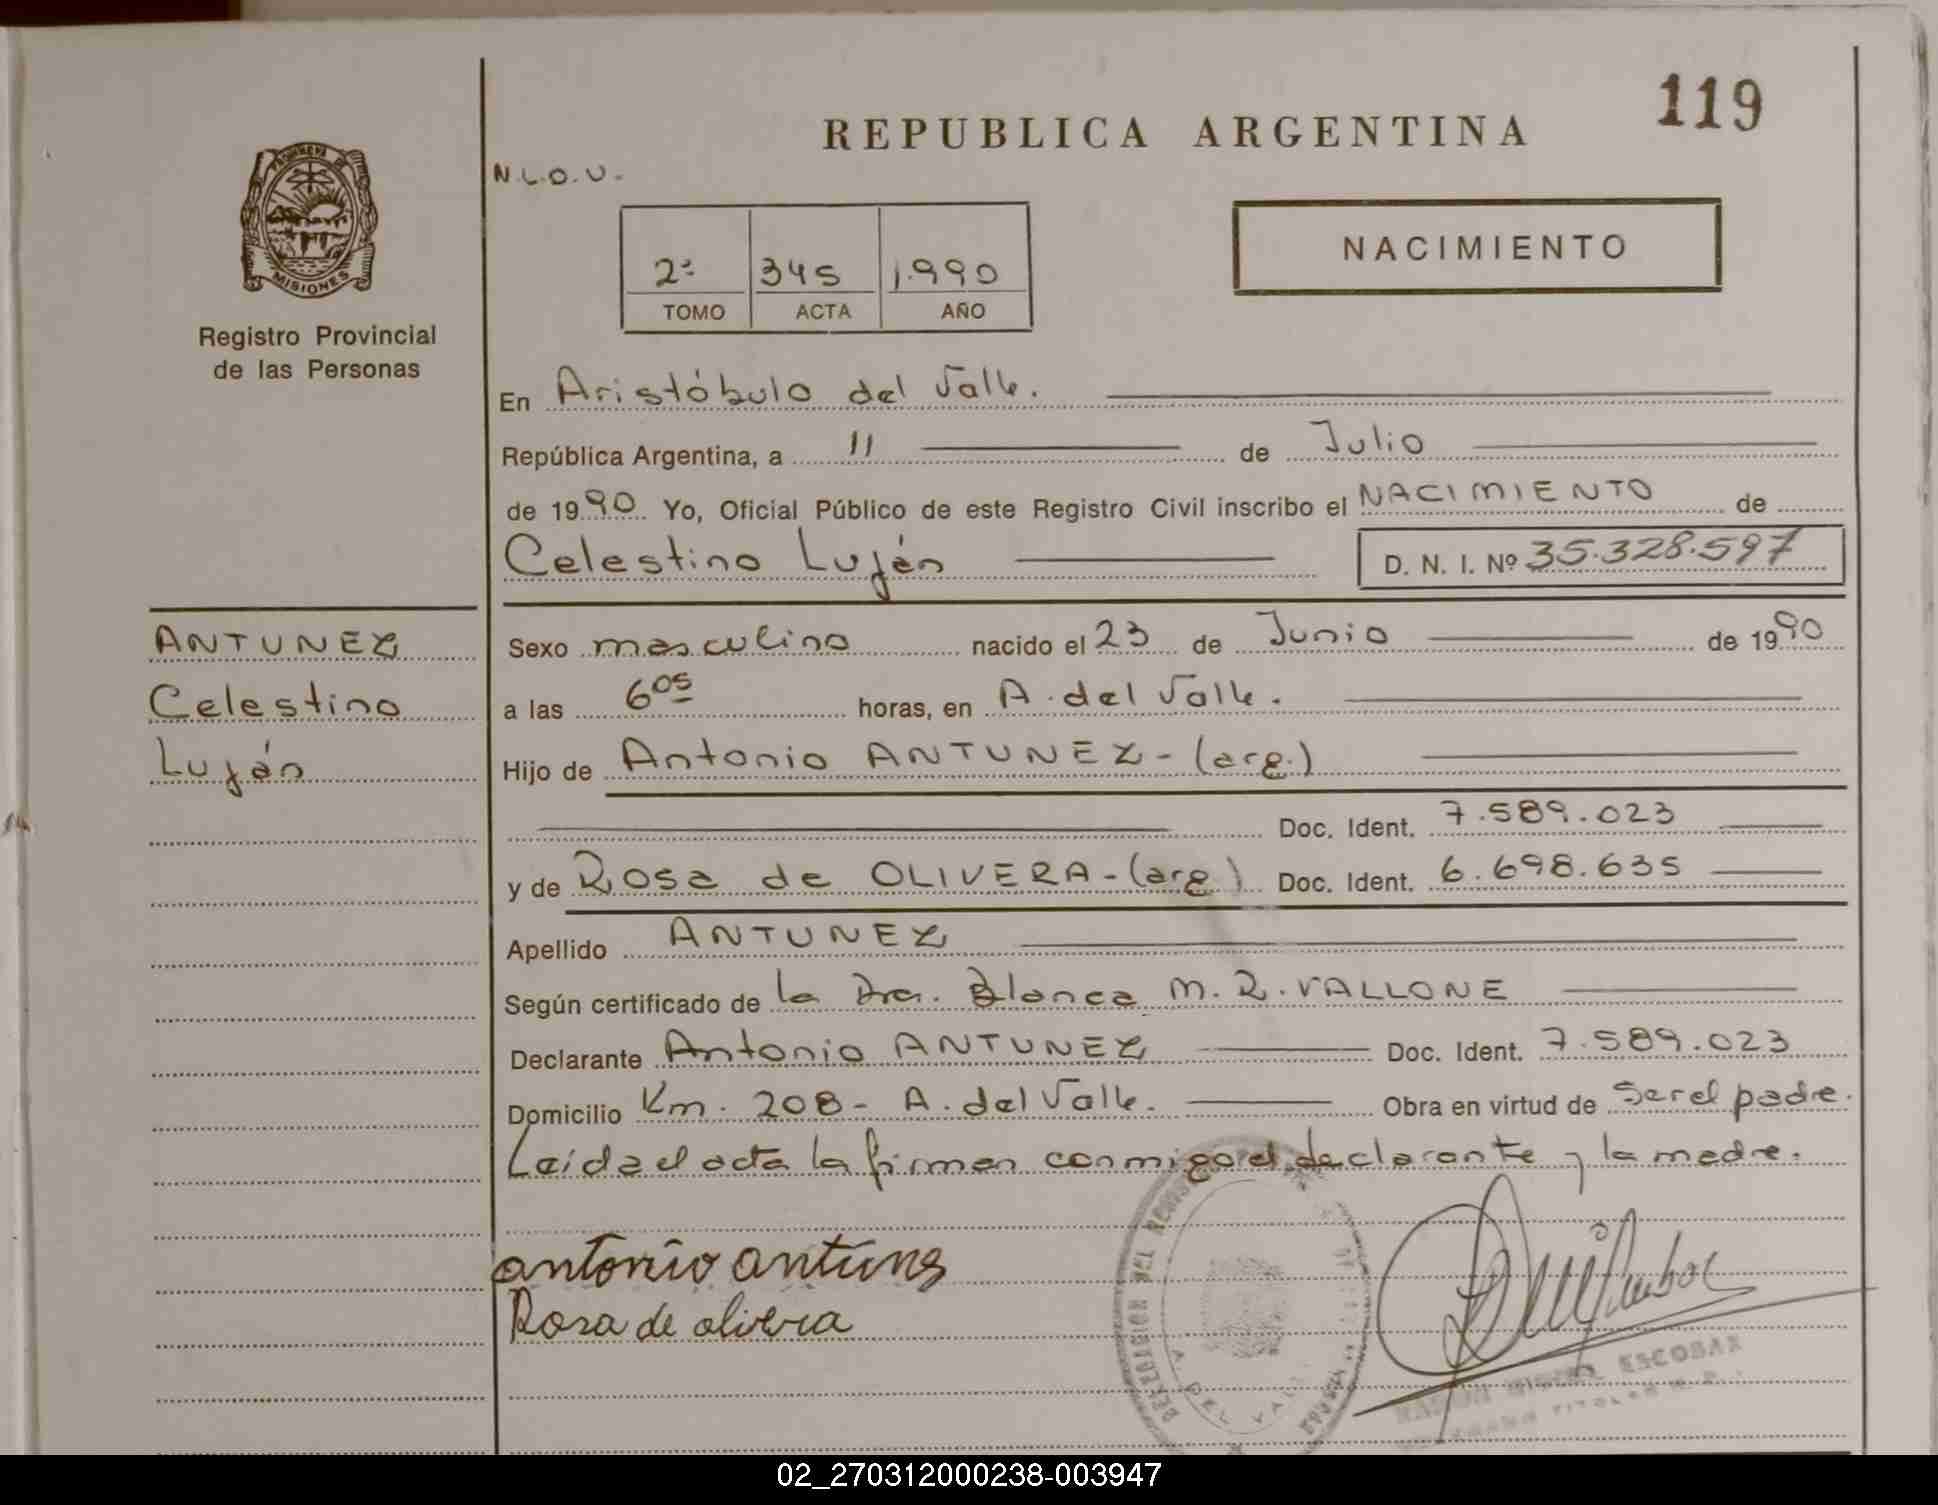 119
REPUBLICA ARGENTINA
PROVINCIA DE
MISIONES
Registro Provincial
de las Personas
N.L.O.V.
2ª 345 1.990
TOMO ACTA AÑO
NACIMIENTO
En Aristóbulo del Valle.
República Argentina, a 11 de Julio
de 1990. Yo, Oficial Público de este Registro Civil inscribo el NACIMIENTO de
Celestino Luján D. N. I. Nº 35.328.597
ANTUNEZ
Celestino
Luján
Sexo masculino nacido el 23 de Junio de 1990
a las 6 05 horas, en A. del Valle.
Hijo de Antonio ANTUNEZ - (arg.)
Doc. Ident. 7.589.023
y de Rosa de OLIVERA - (arg.) Doc. Ident. 6.698.635
Apellido ANTUNEZ
Según certificado de la Dra. Blanca M. R. VALLONE
Declarante Antonio ANTUNEZ Doc. Ident. 7.589.023
Domicilio Km. 208 - A. del Valle. Obra en virtud de Ser el padre.
Leída el acta la firman conmigo el declarante y la madre.
antonio antuns
Rosa de olivera
A. DEL VALLE
MIGUEL ESCOBAR
02_270312000238-003947